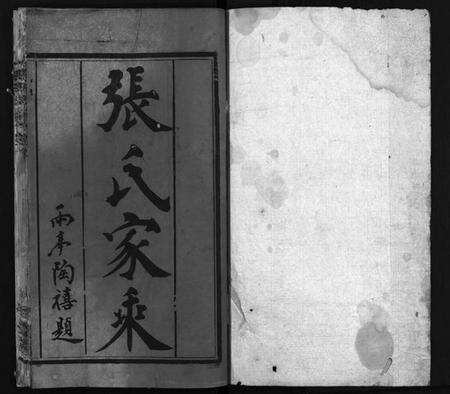 張氏家乘
雨亭陶禧題